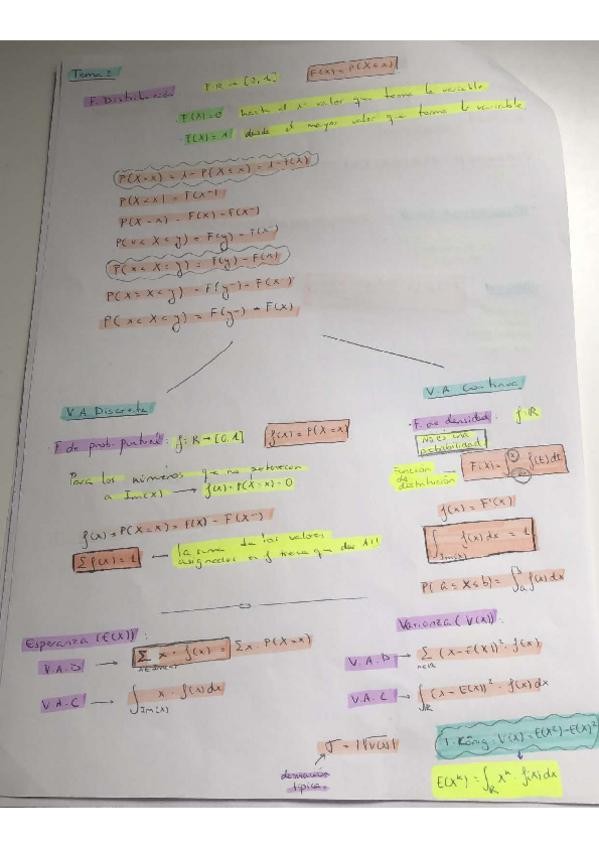 Tema 2
F. Distribución F: R → [0, 1] F(x) = P(X ≤ x)
F(x) = 0 hasta el 1er valor que toma la variable
F(x) = 1 desde el mayor valor que toma la variable
P(X > x) = 1 - P(X ≤ x) = 1 - F(x)
P(X < x) = F(x⁻)
P(X = x) = F(x) - F(x⁻)
P(x ≤ X ≤ y) = F(y) - F(x⁻)
P(x < X ≤ y) = F(y) - F(x)
P(x ≤ X < y) = F(y⁻) - F(x⁻)
P(x < X < y) = F(y⁻) - F(x)
V.A. Discreta
F de prob. puntual: f: R → [0, 1] f(x) = P(X = x)
Para los números que no pertenecen
a Im(X) → f(x) = P(X = x) = 0
f(x) = P(X = x) = F(x) - F(x⁻)
Σ f(x) = 1 ← la suma de los valores
asignados en f tiene que dar 1!!
V.A. Continua
F. de densidad: f: R
No es una
probabilidad
Función
de distribución → F(x) = ∫ f(t) dt
f(x) = F'(x)
∫Im(X) f(x) dx = 1
P(a ≤ X ≤ b) = ∫ₐᵇ f(x) dx
Esperanza (E(X)):
V.A.D → Σ x · f(x) = Σ x · P(X = x)
V.A.C → ∫Im(X) x · f(x) dx
Varianza (V(X)):
V.A.D → Σ (x - E(X))² · f(x)
V.A.C → ∫R (x - E(X))² · f(x) dx
σ = |√V(X)|
desviación
típica
T. König: V(X) = E(X²) - E(X)²
E(Xᵏ) = ∫R xᵏ · f(x) dx